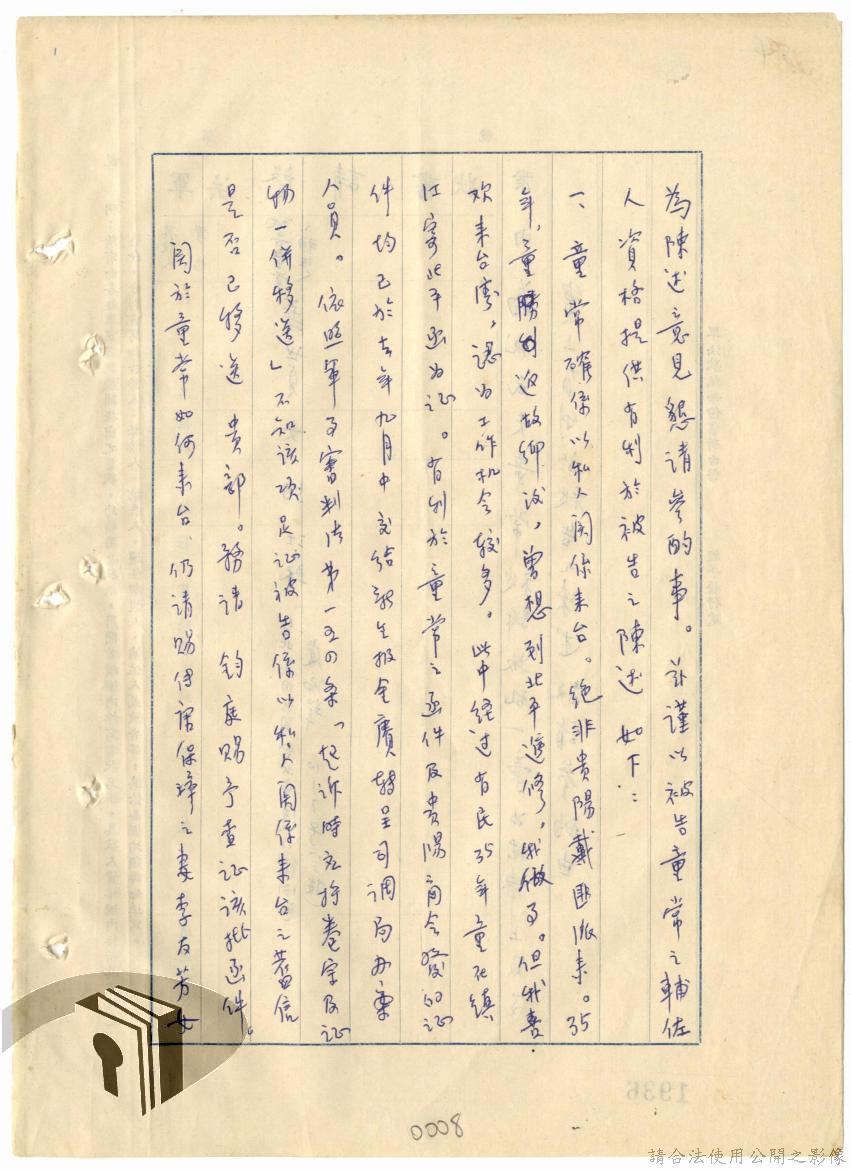 為陳述意見懇請參酌事。茲謹以被告童常之輔佐
人資格提供有利於被告之陳述如下:
一、童常確係以私人関係来台。絶非貴陽戴匪派来。35
年,童勝利返故鄉後,曾想到北平進修,或做事。但我喜
欢来台湾,認为工作机会較多。此中経过有民35年童在鎮
江寄北平函为証。有利於童常之函件及貴陽商会發的証
件均已於去年九月中交給新生报金賡轉呈司調局办案
人員。依照軍事審判法第一五四条「起訴時应将卷宗及証
物一併移送」不知該項足証被告係以私人関係来台之舊信
是否已移送 貴部。務請 鈞庭賜予查証該批函件。
関於童常如何来台,仍請賜傳唐保璋之妻李友芳女
0008
1936
請合法使用公開之影像